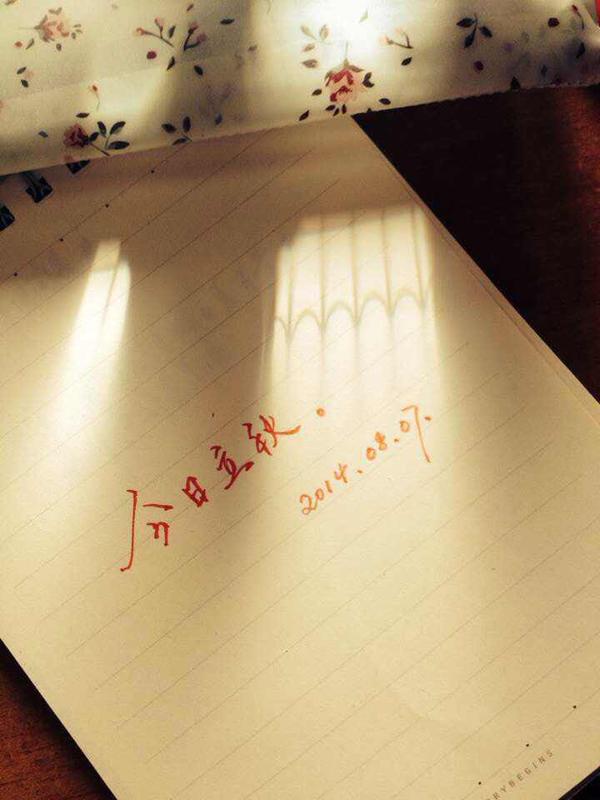 今日立秋.
2014.08.07.
RYBEGINS